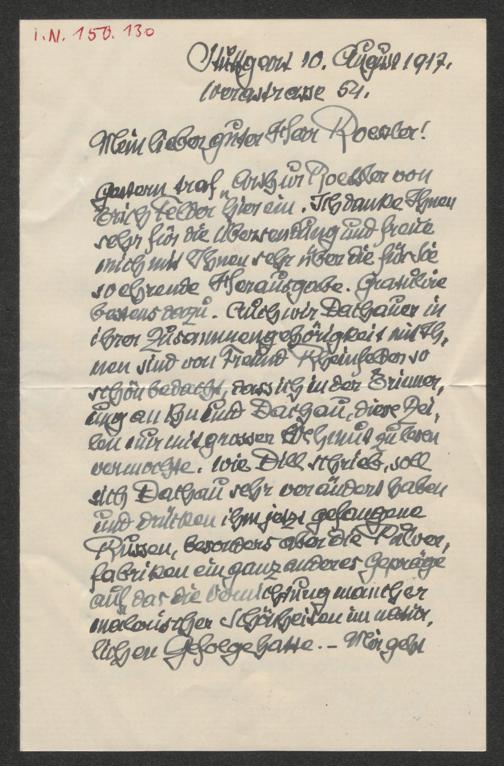 I.N. 150.130
Stuttgart 10. August 1917.
Werastrasse 54.
Mein lieber guter Herr Roessler!
gestern traf „Arthur Roessler von
Erich Felder hier ein. Ich danke Ihnen
sehr für die Übersendung und freue
mich mit Ihnen sehr über die für Sie
so ehrende Herausgabe. Gratulire
bestens dazu. Auch wir Dachauer in
ihrer Zusammengehörigkeit mit Ih,
nen sind von Freund Rheinfelder so
schön bedacht, dass ich in der Erinner,
ung an Sie und Dachau, diese Zei,
len nur mit grosser Wehmut zu lesen
vermochte. Wie Dill schrieb, soll
sich Dachau sehr verändert haben
und drücken ihm jetzt gefangene
Russen, besonders aber die Pulver,
fabriken ein ganz anderes Gepräge
auf, das die Vernichtung mancher
malerischer Schönheiten im natür,
lichen Gefolge hatte. – Mir geht